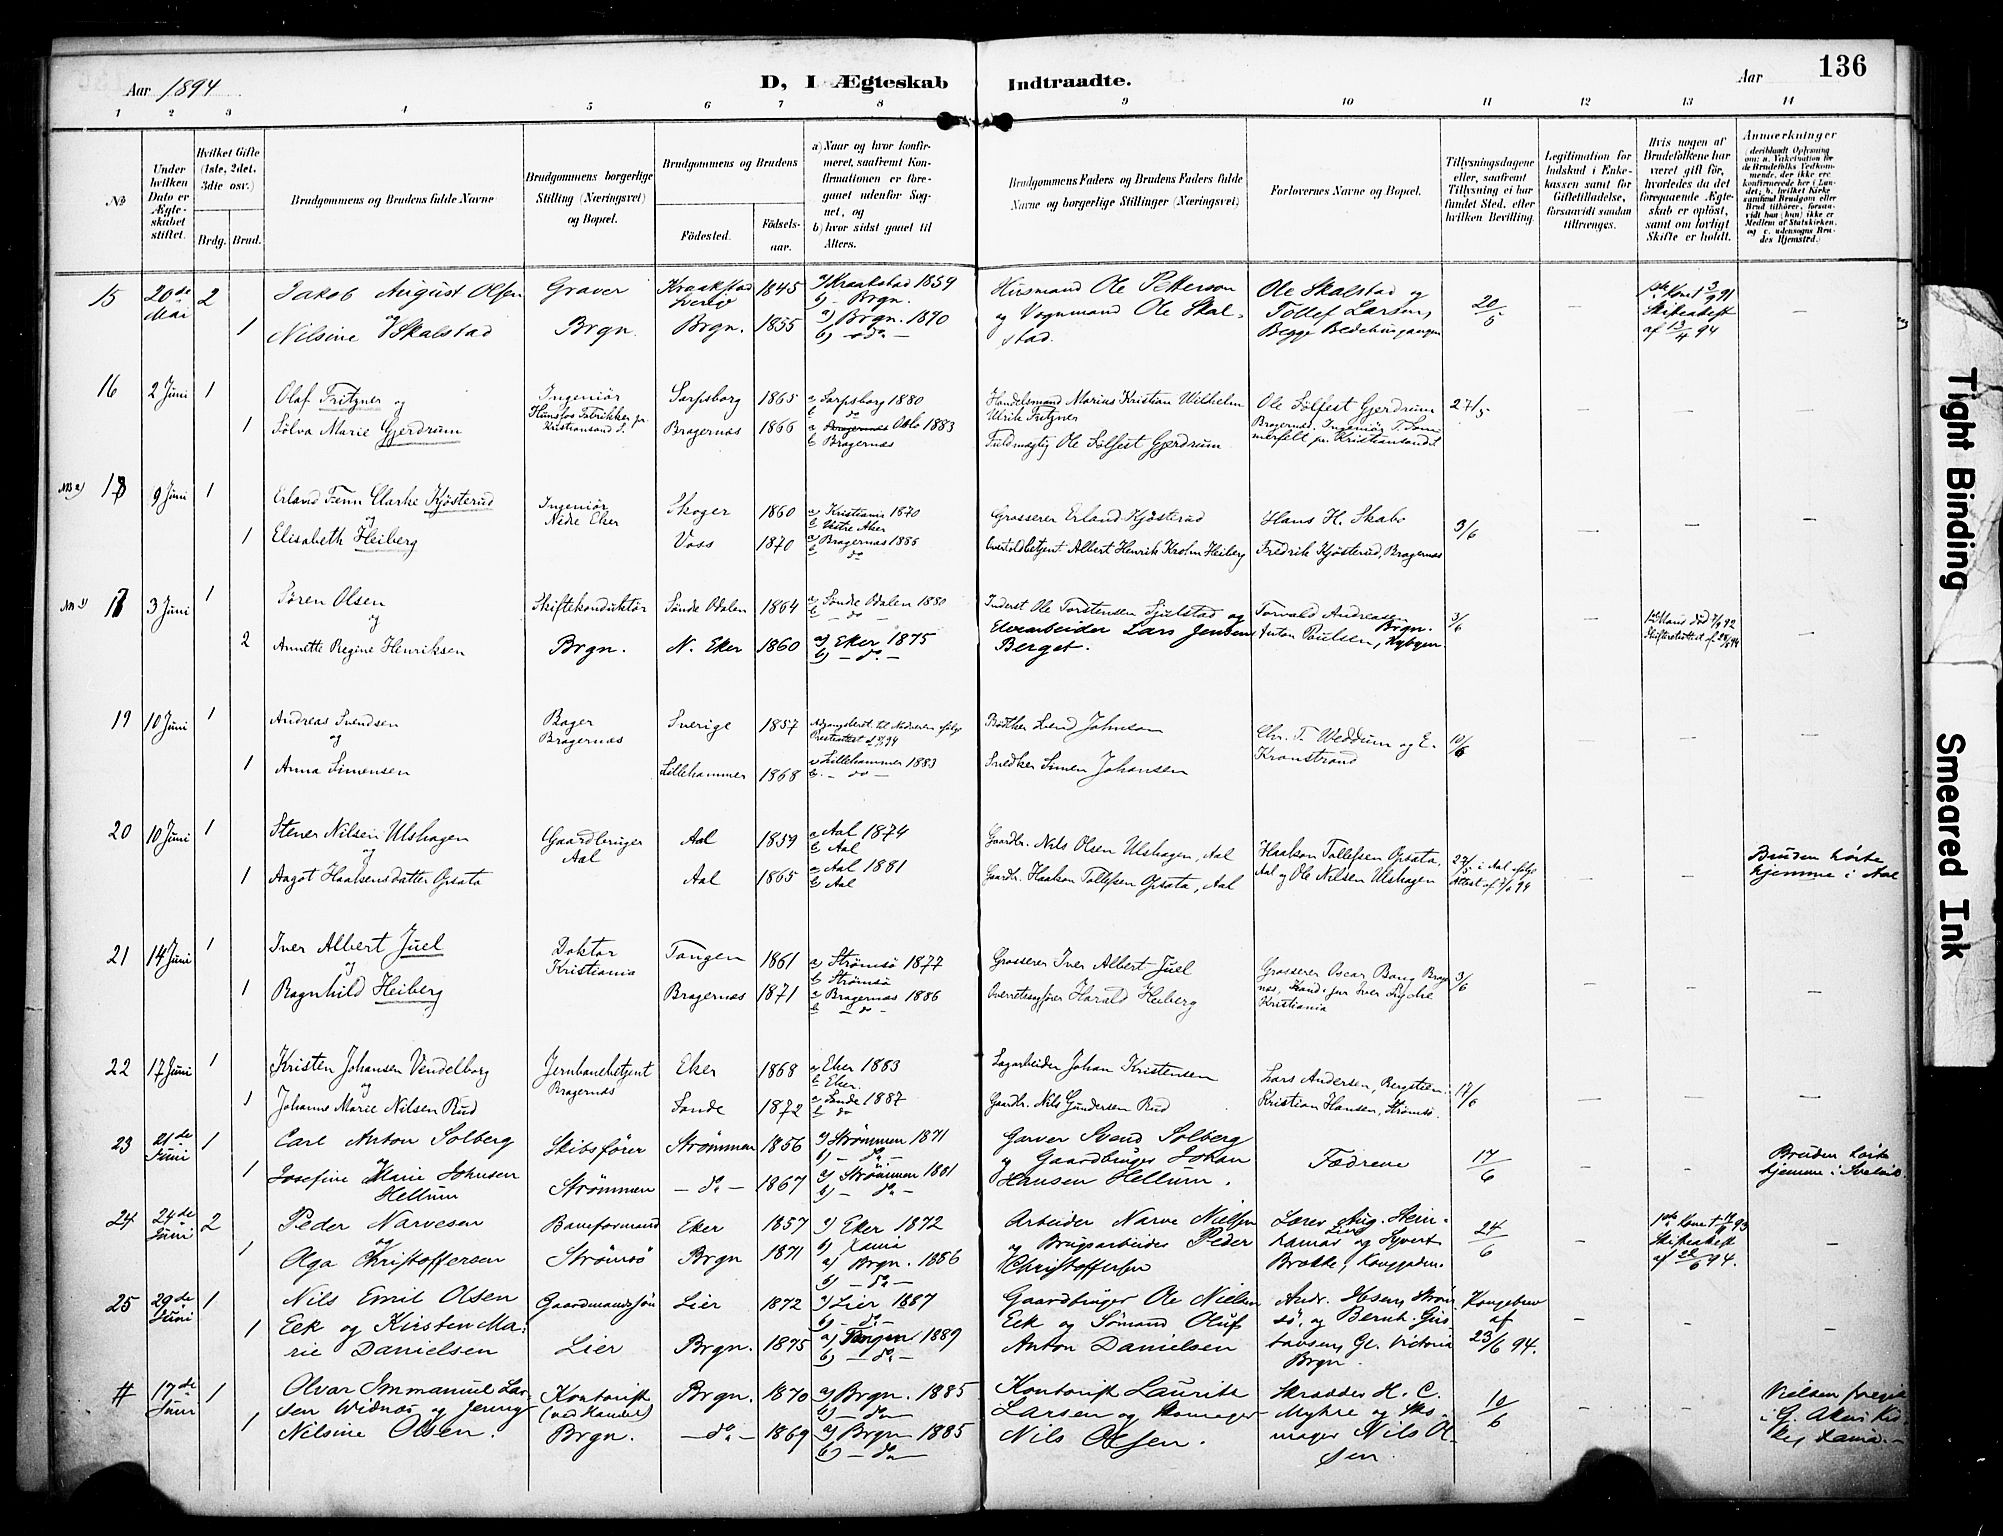 Aar 1894
D, I Ægteskab Indtraadte.
Aar 136
1 2 3 4 5 6 7 8 9 10 11 12 13 14
No
Under hvilken Dato er Ægteskabet stiftet.
Hvilket Gifte (1ste, 2det, 3die osv.)
Brdg. Brud.
Brudgommens og Brudens fulde Navne
Brudgommens borgerlige Stilling (Næringsvei) og Bopæl.
Brudgommens og Brudens
Fødested. Fødselsaar.
a) Naar og hvor konfirmeret, saafremt Konfirmationen er foregaaet udenfor Sognet, og
b) hvor sidst gaaet til Alters.
Brudgommens Faders og Brudens Faders fulde Navne og borgerlige Stillinger (Næringsvei)
Forlovernes Navne og Bopæl.
Tillysningsdagene eller, saafremt Tillysning ei har fundet Sted, efter hvilken Bevilling.
Legitimation for Indskud i Enkekassen samt for Giftetilladelse, forsaavidt saadan tiltrænges.
Hvis nogen af Brudefolkene har været gift før, hvorledes da det foregaaende Ægteskab er opløst, samt om lovligt Skifte er holdt.
Anmærkninger
deriblandt Oplysning om: a. Vakcination for de Brudefolks Vedkommende, der ikke ere konfirmerede her i Landet; b. hvilket Kirkesamfund Brudgom eller Brud tilhører, forsaavidt han (hun) ikke er Medlem af Statskirken, og c. udensogns Brudes Hjemsted.)
15 20de Mai 2 Jakob August Olsen og Graver Kraakstad Sverig 1845 a) Kraakstad 1859 b) Brgn. Husmand Ole Petterson Ole Skalstad og 20/5 – 1ste Kone † 3/9 91
1 Nilsine Skalstad Brgn. Brgn. 1855 a) Brgn. 1870 b) – do – og Vognmand Ole Skalstad. Tollef Larsen, Begge Bedehusgangen Skifteattest af 13/4 94 –
16 2 Juni 1 Olaf Fritzner og Ingeniør Sarpsborg 1865 a Sarpsborg 1880 b do Handelsmand Marius Kristian Wilhelm Ulrik Fritzner Ole Sølfest Gjerdrum 27/5 – – –
1 Sølva Marie Gjerdrum Hunsfos Fabrikker pr. Kristiansand S. Bragernæs 1866 a Oslo 1883 b Bragernæs Fuldmægtig Ole Sølfest Gjerdrum Bragernæs, Ingeniør T. Sommerfelt pr. Kristiansand S
NB 2) 18 9 Juni 1 Erland Fenn Clarke Kjøsterud og Ingeniør Nedre Eker Skoger 1860 a Kristiania 1870 b Vestre Aker Grosserer Erland Kjøsterud Hans H. Skabo 3/6 – – –
1 Elisabeth Heiberg Voss 1870 a) Bragernæs 1886 b do Overtoldbetjent Albert Henrik Krohn Heiberg Fredrik Kjøsterud, Bragernæs
NB 1) 17 3 Juni 1 Søren Olsen og Skiftekonduktør Søndre Odalen 1864 a Søndre Odalen 1880 b – do – Inderst Ole Torstensen Sjulstad og Torvald Andreasen Brgn. 3/6 1ste Mand død 7/9 92
2 Annette Regine Henriksen Brgn. N. Eker 1860 a) Eker 1875 b) – do. – Elvearbeider Lars Jensen Berget. Anton Paulsen, Nybyen Skifteattest –
19 10 Juni 1 Andreas Svendsen og Bager Bragernæs Sverige 1857 Adgangsberet. til Nadveren ifølge Prestattest Bødker Svend Johnson Chr. F. Weddum og E. Kronstrand 10/6 – – –
1 Anna Simensen Lillehammer 1868 a Lillehammer 1883 b. – do – Snedker Simen Johansen
20 10 Juni 1 Stener Nilsen Ulshagen og Gaardbruger Aal Aal 1859 a Aal 1874 b Aal Gaardbr. Nils Olsen Ulshagen, Aal Haakon Tollefsen Opsata, 27/5 i Aal ifølge Bruden hørte
1 Aagot Haakensdatter Opsata Aal 1865 a Aal 1881 b Aal Gaardbr. Haakon Tollefsen Opsata, Aal Aal og Ole Nilsen Ulshagen Attest af 7/6 94 – – hjemme i Aal
21 14 Juni 1 Iver Albert Juel og Doktor Kristiania Tangen 1861 a Strømsø 1877 b Strømsø Grosserer Iver Albert Juel Grosserer Oscar Bang Bragernæs, Kand. jur Iver Lyche Kristiania 3/6 – – –
1 Ragnhild Heiberg Bragernæs 1871 a Bragernæs 1886 b – do – Overretssagfører Harald Heiberg
22 17 Juni 1 Kristen Johansen Vendelborg og Jernbanebetjent Bragernæs Eker 1868 a Eker 1883 b Eker. Sagarbeider Johan Kristensen Lars Andersen, Bergstien. 17/6 – – –
1 Johanne Marie Nilsen Rud Sande 1872 a Sande 1887 b do Gaardbr. Nils Gundersen Rud Kristian Hansen, Strømsø.
23 21de Juni 1 Carl Anton Solberg og Skibsfører Strømmen 1856 a) Strømmen 1871 b) – do – Garver Svend Solberg Fædrene 17/6 – – Bruden hørte
1 Josefine Marie Johnsen Hellum Strømmen – do – 1867 a) Strømmen 1881 b) – do – og Gaardbruger Johan Hansen Hellum. hjemme i Svelvik.
24 24de Juni 2 Peder Narvesen og Baneformand Eker 1857 a) Eker 1872 b) Xania Arbeider Narve Nielsen Lærer Aug. Heinhamar Lier og Syvert Brække, Konggaden 24/6 – 1ste Kone † 93
1 Olga Christoffersen Strømsø Brgn 1871 a) Brgn. 1886 b) – do – og Brugsarbeider Peder Christoffersen Skifteattest af 94. –
25 29de Juni 1 Nils Emil Olsen Gaardmandssøn Lier 1872 a) Lier 1887 b) – do – Gaardbruger Ole Nielsen Andr. Ibsen, Strømsø, og Bernh. Gustavsen, Gl. Victoria Brgn. Kongebrev af 23/6 94. – – –
1 Eek og Kirsten Marie Danielsen Lier Brgn. 1875 a) Tangen 1889 b) – do – Eek og Sømand Oluf Anton Danielsen
# 17de Juni 1 Olvar Immanuel Larsen Widnæs og Jenny Kontorist (ved Handel) Brgn. 1870 a) Brgn. 1885 b) – do – Kontorist Lauritz Skrædder H. C. Myhre og Skomager Nils Olsen. 10/6 – – Vielsen foregik
1 Nilsine Olsen. Brgn. – do – 1869 a) Brgn 1885 b) – do – Larsen og Skomager Nils Olsen. i G. Akers Kirke, Xania.
Tight Binding
Smeared Ink